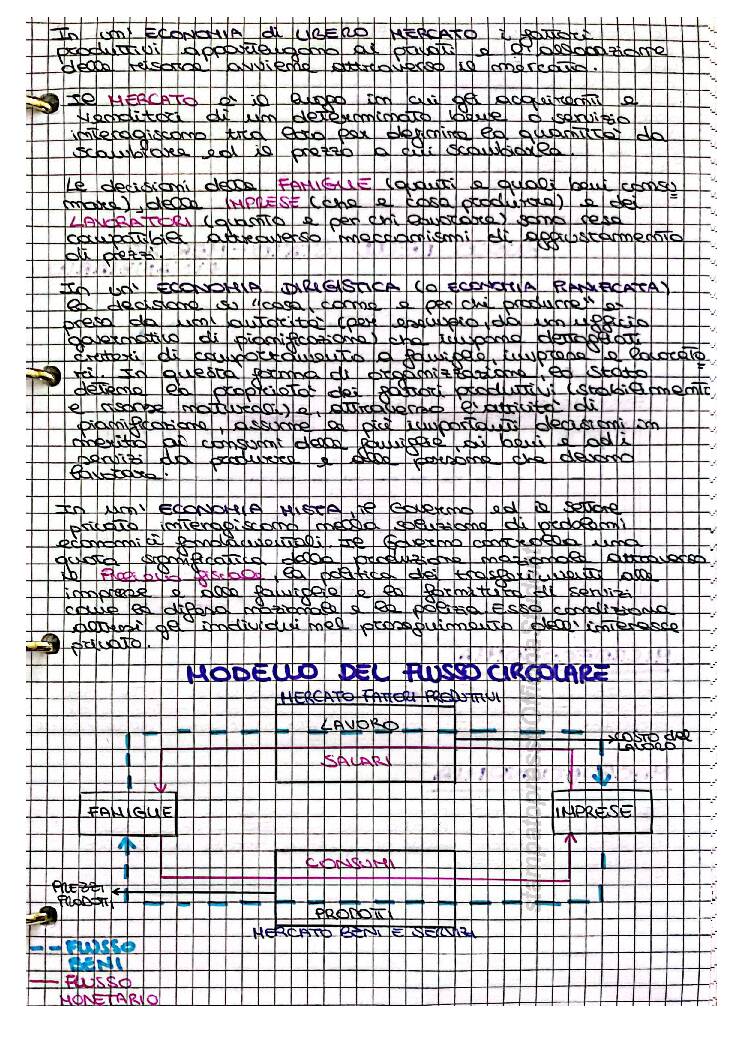 In un' ECONOMIA di LIBERO MERCATO i fattori
produttivi appartengono ai privati e l'allocazione
delle risorse avviene attraverso il mercato.
Il MERCATO è il luogo in cui gli acquirenti e
venditori di un determinato bene o servizio
interagiscono tra loro per definire la quantità da
scambiare ed il prezzo a cui scambiarla.
Le decisioni delle FAMIGLIE (quanti e quali beni consu=
mare), delle IMPRESE (che e cosa produrre) e dei
LAVORATORI (quanto e per chi lavorare) sono rese
compatibili attraverso meccanismi di aggiustamento
di prezzi.
In un' ECONOMIA DIRIGISTICA (o ECONOMIA PIANIFICATA)
la decisione su "cosa, come e per chi produrre" è
presa da un' autorità (per esempio, da un ufficio
governativo di pianificazione) che impone dettagliati
criteri di comportamento a famiglie, imprese e lavorato
ri. In questa forma di organizzazione lo Stato
detiene la proprietà dei fattori produttivi (stabilimenti
e risorse naturali) e, attraverso l'attività di
pianificazione, assume le più importanti decisioni in
merito ai consumi delle famiglie, ai beni e ed i
servizi da produrre e alle persone che devono
lavorare.
In un' ECONOMIA MISTA, il Governo ed il settore
privato interagiscono nella soluzione di problemi
economici fondamentali. Il Governo controlla una
quota significativa della produzione nazionale attraverso
la la politica dei trasferimenti alle
imprese e alle famiglie e la fornitura di servizi
come la difesa nazionale e la polizia. Esso condiziona
altresì gli individui nel proseguimento dell' interesse
privato.
MODELLO DEL FLUSSO CIRCOLARE
MERCATO FATTORI PRODUTTIVI
LAVORO
COSTO DEL
LAVORO
SALARI
FAMIGLIE
IMPRESE
CONSUMI
PREZZI
PRODOTTI
PRODOTTI
MERCATO BENI E SERVIZI
FLUSSO
BENI
FLUSSO
MONETARIO